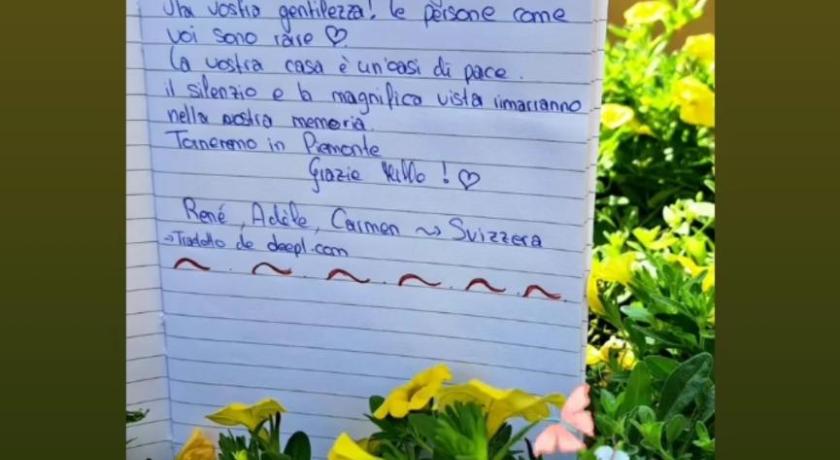 vostra gentilezza! le persone come
voi sono rare ♡
La vostra casa è un'oasi di pace.
il silenzio e la magnifica vista rimarranno
nella nostra memoria.
Torneremo in Piemonte
Grazie Mille ! ♡
René, Adèle, Carmen ~> Svizzera
→ Tradotto de deepl.com